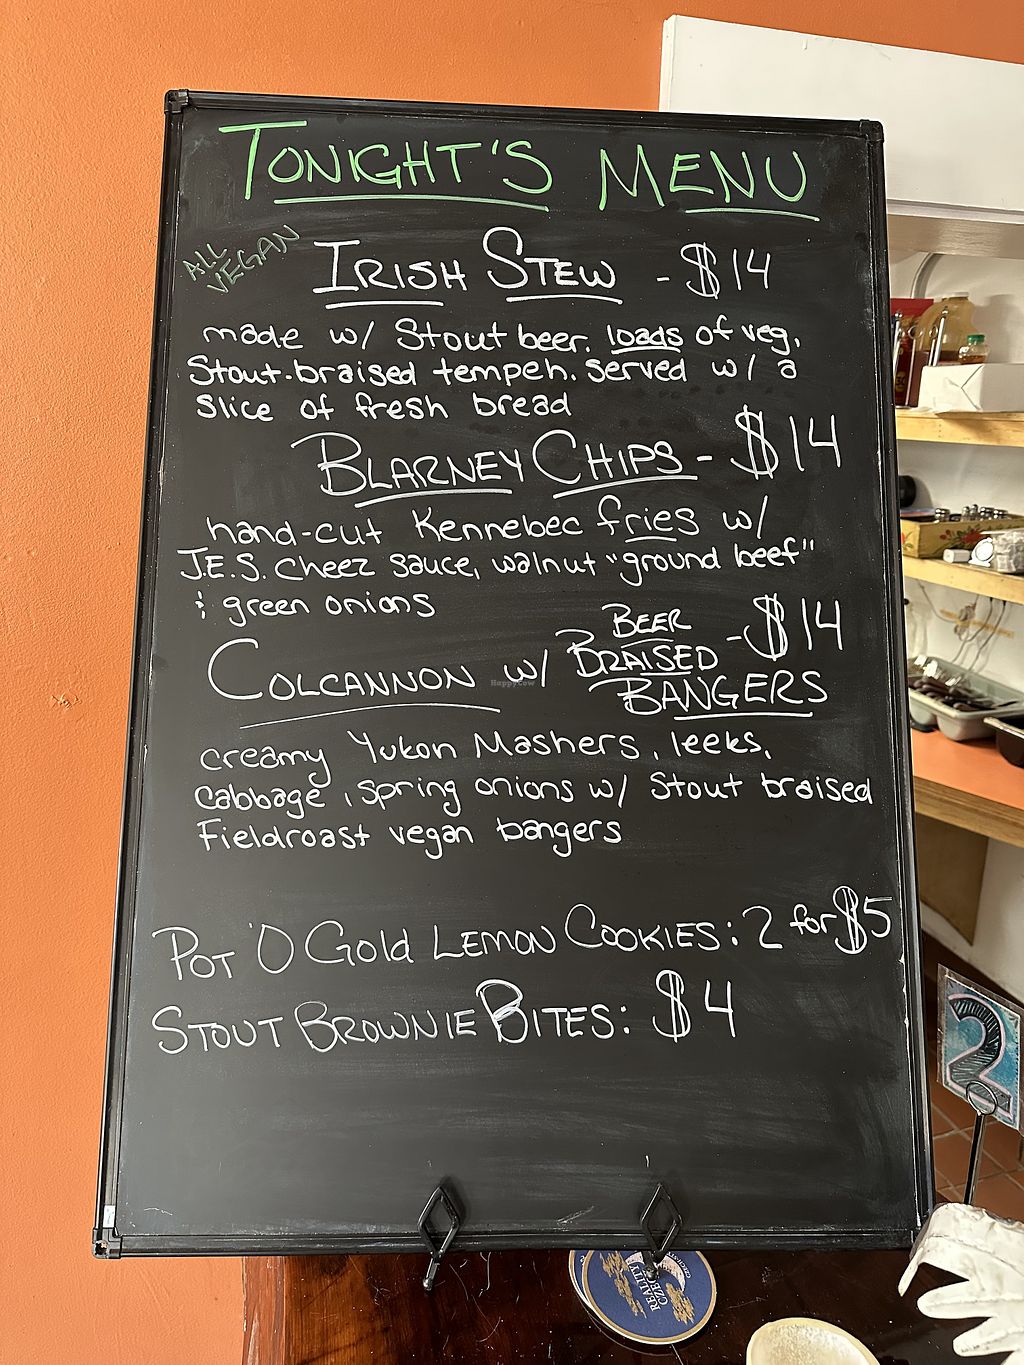 TONIGHT'S MENU
ALL VEGAN
IRISH STEW - $14
made w/ Stout beer, loads of veg,
Stout-braised tempeh. served w/ a
slice of fresh bread
BLARNEY CHIPS - $14
hand-cut Kennebec fries w/
J.E.S. cheez sauce, walnut "ground beef"
& green onions
COLCANNON w/ BEER BRAISED BANGERS - $14
creamy Yukon Mashers, leeks,
cabbage, spring onions w/ Stout braised
Fieldroast vegan bangers
POT 'O Gold LEMON COOKIES: 2 for $5
STOUT BROWNIE BITES: $4
HappyCow
2
REALITY
CZECK